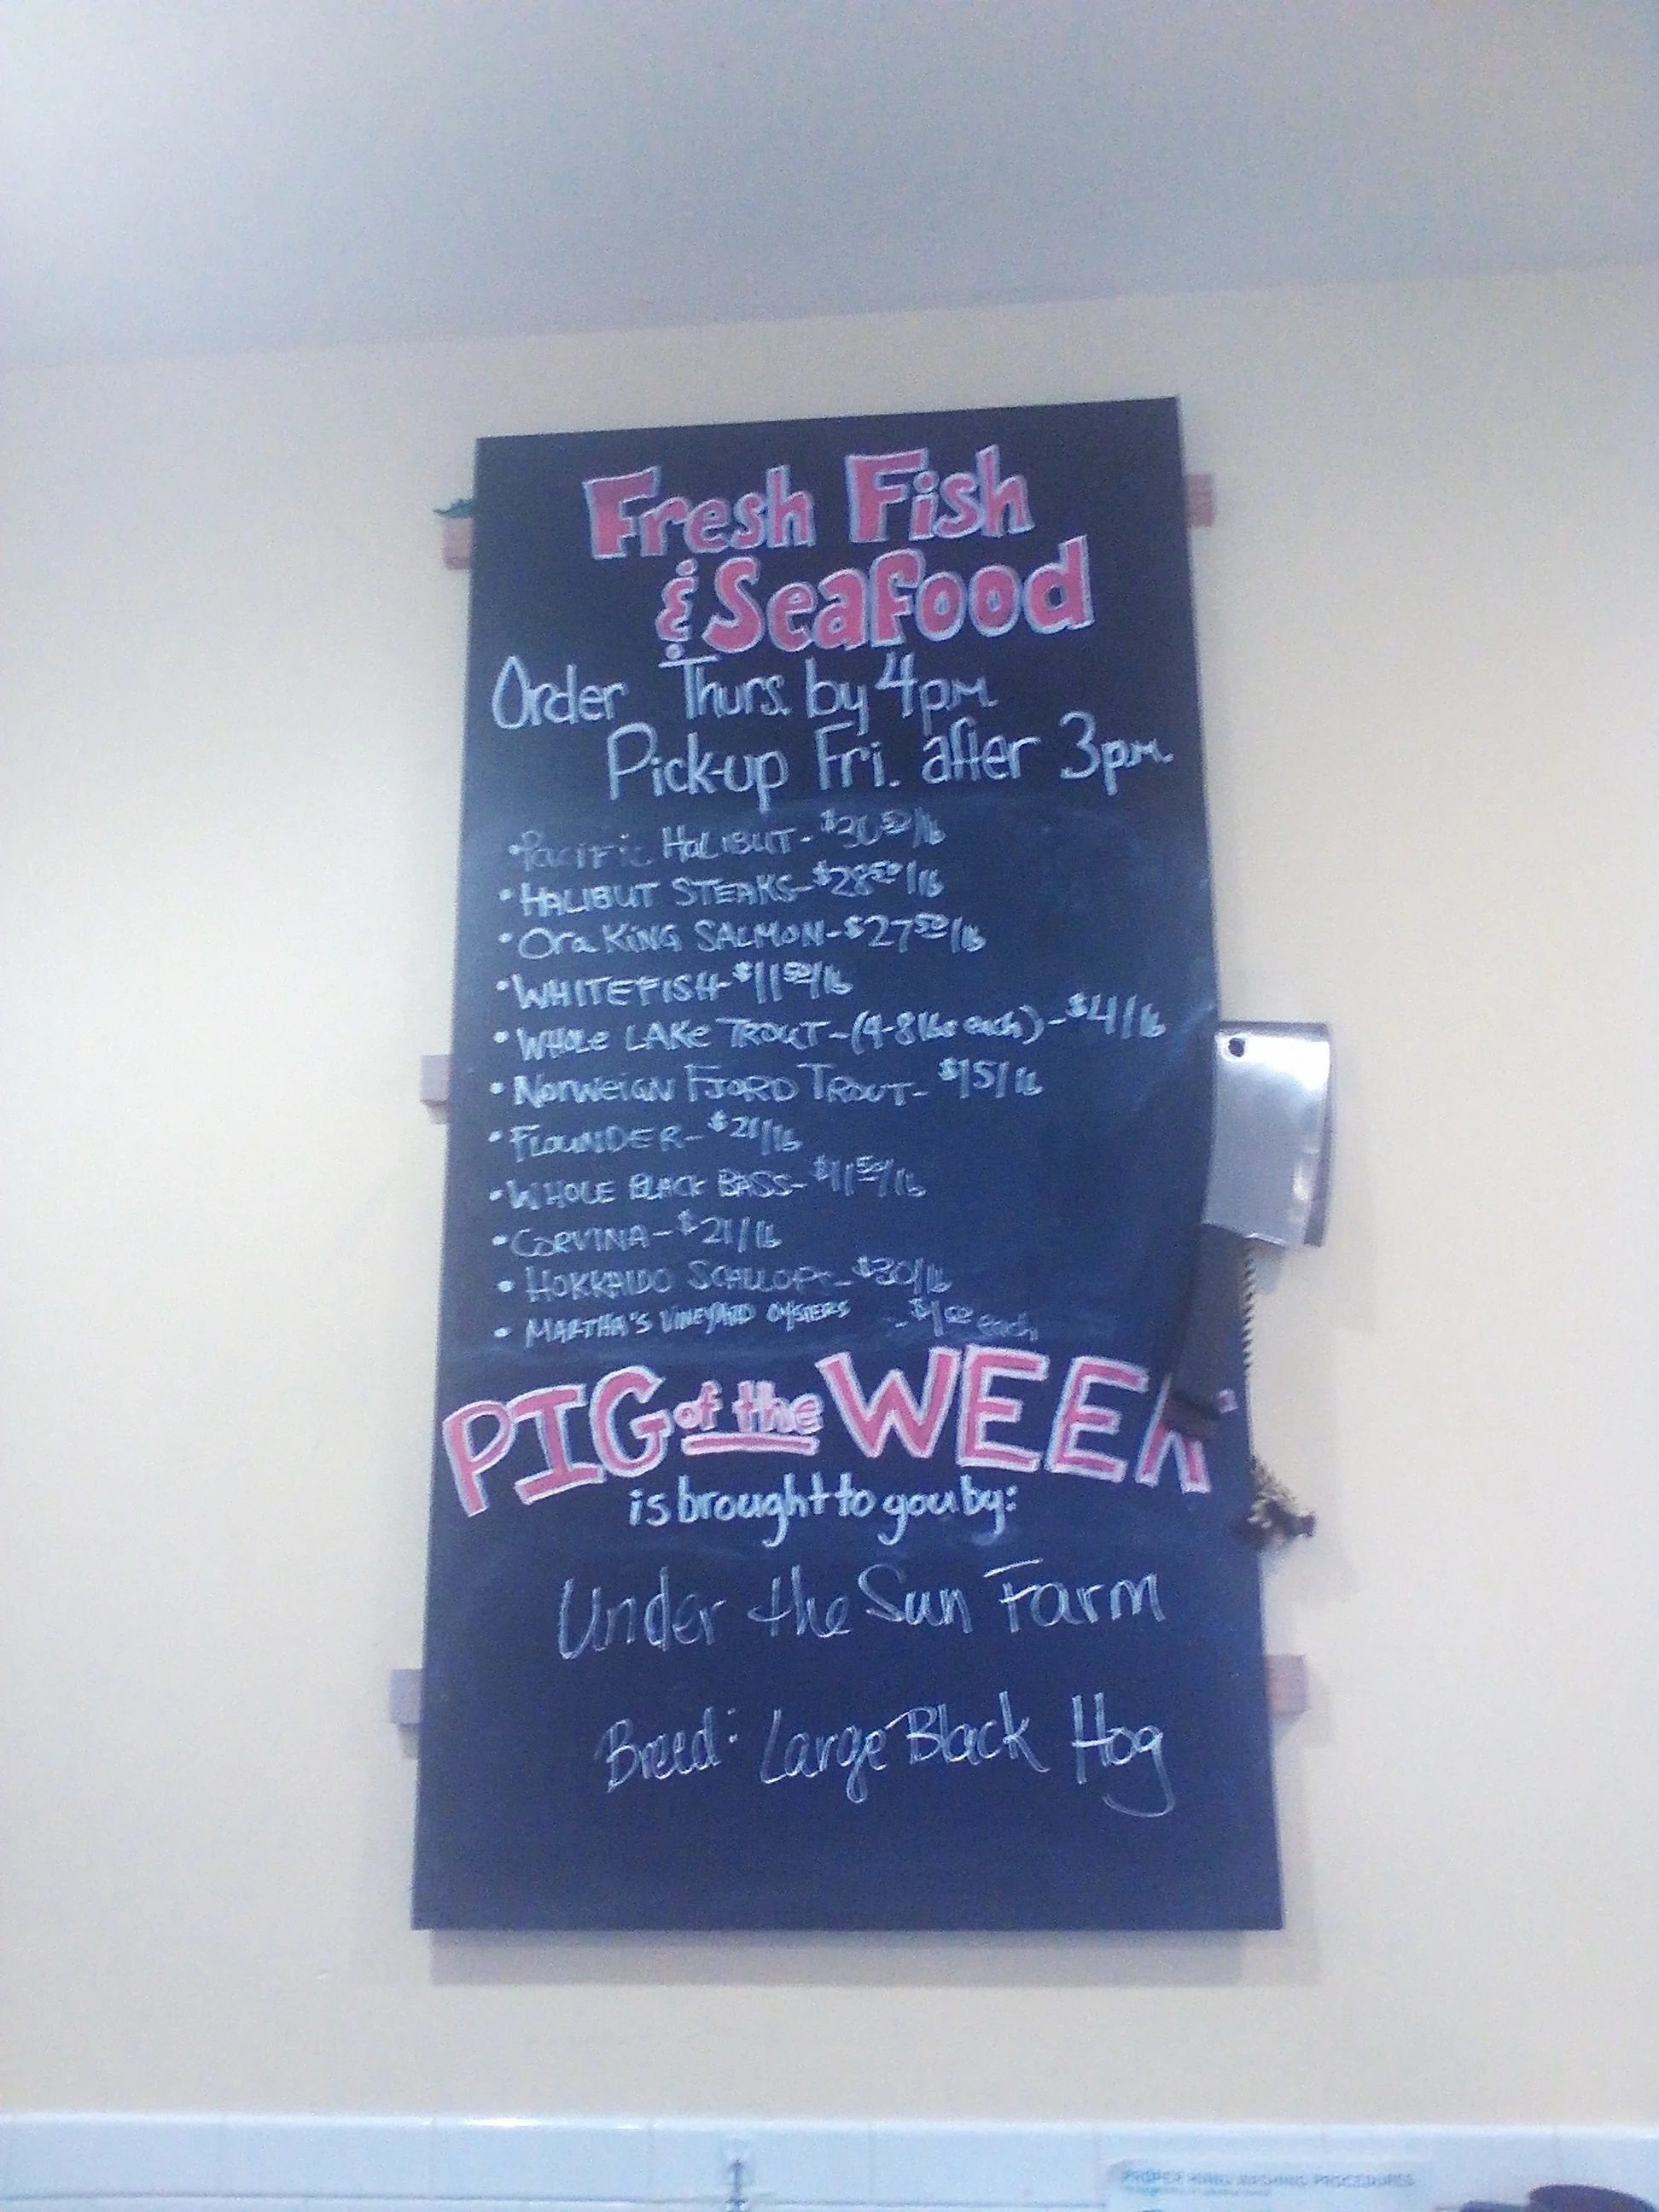 Fresh Fish
& Seafood
Order Thurs. by 4pm
Pick-up Fri. after 3pm
• Pacific Halibut - $30 50/lb
• HALIBUT STEAKS - $28 50/lb
• Ora KING SALMON - $27 50/lb
• WHITEFISH - $11 50/lb
• WHOLE LAKE TROUT - (4-8 lbs each) - $4/lb
• Norweign FJORD TROUT - $15/lb
• FLOUNDER - $21/lb
• WHOLE BLACK BASS - $11 50/lb
• CORVINA - $21/lb
• HOKKAIDO SCALLOPS - $30/lb
• MARTHA'S VINEYARD OYSTERS - $1 50 each
PIG of the WEEK
is brought to you by:
Under the Sun Farm
Breed: Large Black Hog
PROPER HAND WASHING PROCEDURES